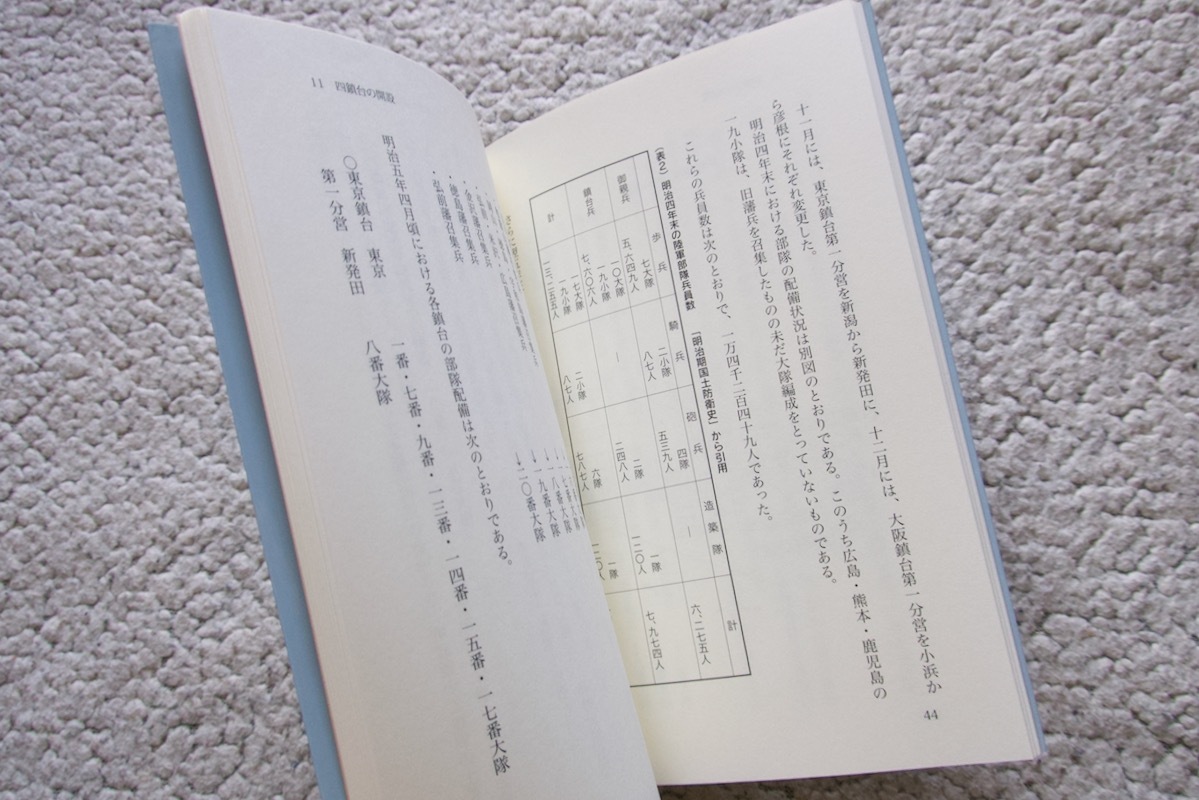 十一月には、東京鎮台第一分営を新潟から新発田に、十二月には、大阪鎮台第一分営を小浜か
ら彦根にそれぞれ変更した。
明治四年末における部隊の配備状況は別図のとおりである。このうち広島・熊本・鹿児島の
一九小隊は、旧藩兵を召集したものの未だ大隊編成をとっていないものである。
これらの兵員数は次のとおりで、一万四千二百四十九人であった。
(表2) 明治四年末の陸軍部隊兵員数 「明治期国土防衛史」から引用
歩兵 騎兵 砲兵 造築隊 計
御親兵 七大隊 五、六四九人 二小隊 八七人 四隊 五三九人 — 六、二七五人
鎮台兵 一〇大隊 一九小隊 七、六〇六人 — 二隊 二四八人 一隊 一二〇人 七、九七四人
計 一七大隊 一九小隊 一三、二五五人 二小隊 八七人 六隊 七八七人 一隊 一二〇人
44
11 四鎮台の開設
・弘前藩召集兵 →二〇番大隊
明治五年四月頃における各鎮台の部隊配備は次のとおりである。
〇東京鎮台 東京 一番・七番・九番・一三番・一四番・一五番・一七番大隊
第一分営 新発田 八番大隊